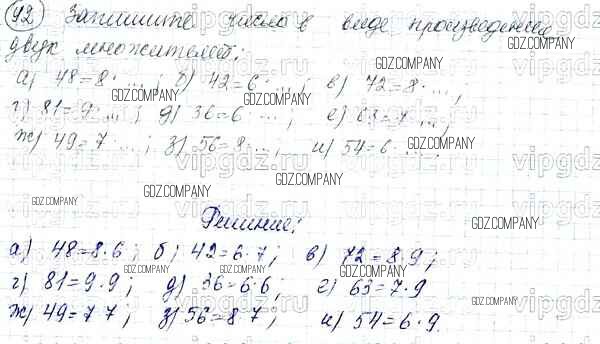 92 Запишите числа в виде произведения
двух множителей:
а) 48=8· ...; б) 42=6· ...; в) 72=8· ...;
г) 81=9· ...; д) 36=6· ...; е) 63=7· ...;
ж) 49=7 ...; з) 56=8 ...; и) 54=6· ...;
Решение:
а) 48=8·6; б) 42=6·7; в) 72=8·9;
г) 81=9·9; д) 36=6·6; е) 63=7·9
ж) 49=7 7; з) 56=8 7; и) 54=6·9.
GDZ.COMPANY
vipgdz.ru